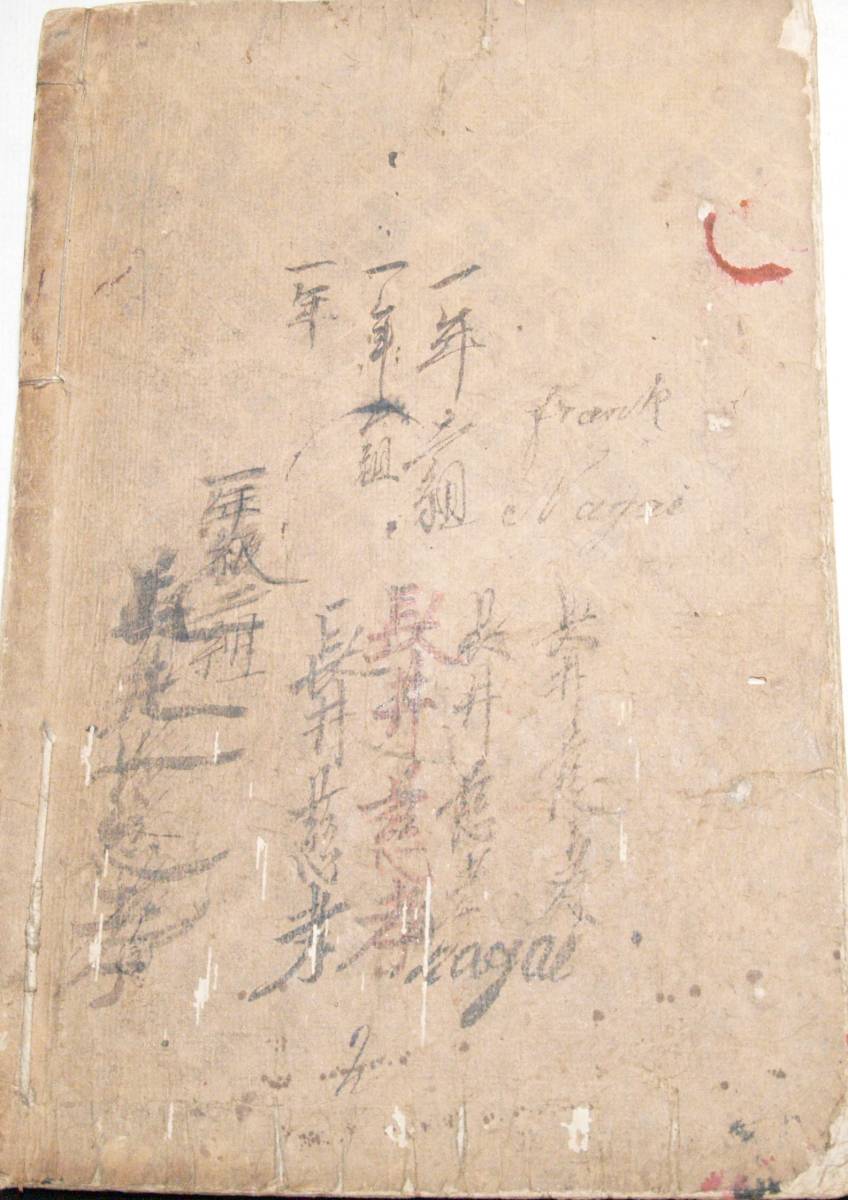 frank
Nagai
一年二組
一年二組
一年
一年級二組
長井慈孝
長井慈孝
長井慈孝
長井慈孝
nagai